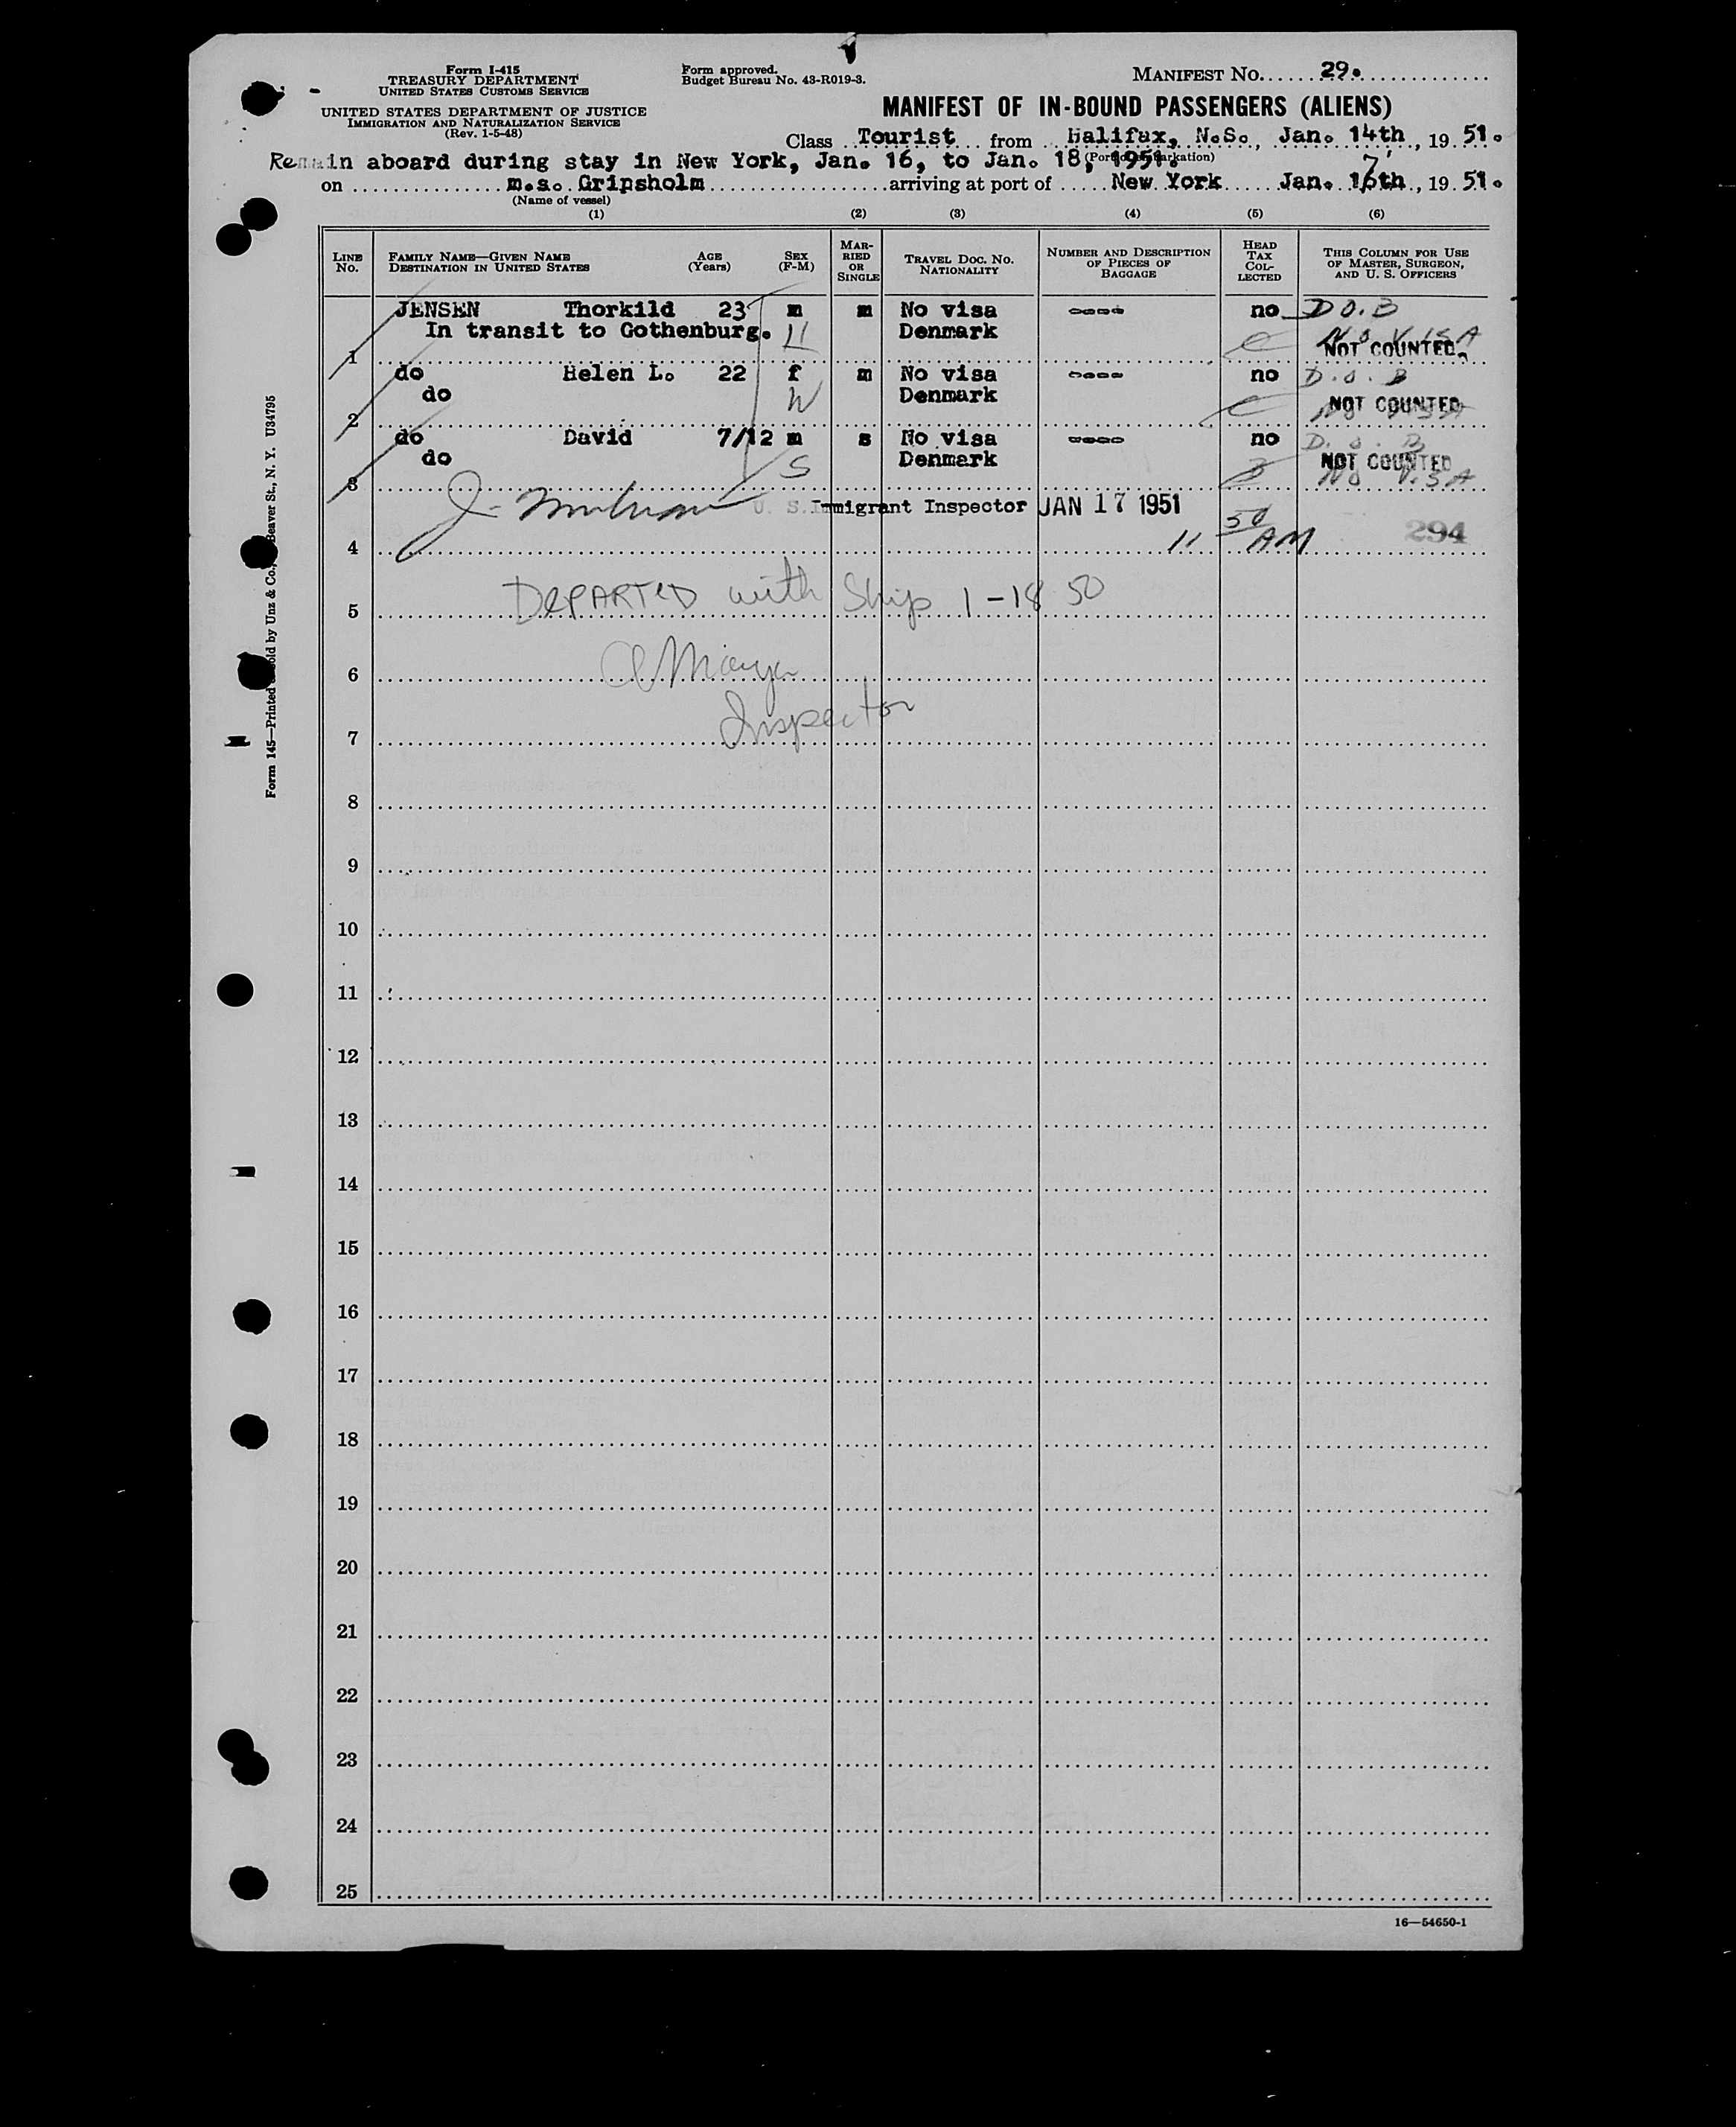 Form I-415
TREASURY DEPARTMENT
UNITED STATES CUSTOMS SERVICE
UNITED STATES DEPARTMENT OF JUSTICE
IMMIGRATION AND NATURALIZATION SERVICE
(Rev. 1-5-48)
Form approved.
Budget Bureau No. 43-R019-3.
MANIFEST NO. 29.
MANIFEST OF IN-BOUND PASSENGERS (ALIENS)
Class Tourist from Halifax, N.S., Jan. 14th, 1951.
Remain aboard during stay in New York, Jan. 16, to Jan. 18, 1951.
(Port of embarkation)
on m.s. Gripsholm arriving at port of New York Jan. 16th, 1951.
7
(Name of vessel)
(1) (2) (3) (4) (5) (6)
LINE No. FAMILY NAME—GIVEN NAME DESTINATION IN UNITED STATES AGE (Years) SEX (F-M) MARRIED OR SINGLE TRAVEL DOC. NO. NATIONALITY NUMBER AND DESCRIPTION OF PIECES OF BAGGAGE HEAD TAX COLLECTED THIS COLUMN FOR USE OF MASTER, SURGEON, AND U. S. OFFICERS
JENSEN Thorkild 23 m m No visa ---- no D O. B
In transit to Gothenburg. H Denmark No VISA
1 NOT COUNTED
do Helen L. 22 f m No visa ---- no D. O. B
do W Denmark NOT COUNTED
2 No VISA
do David 7/12 m s No visa ---- no D. O. B
do S Denmark NOT COUNTED
3 No VISA
J. U. S. Immigrant Inspector JAN 17 1951
4 11 50 AM 294
5 DEPARTED with Ship 1-18 50
6
7 Inspector
8
9
10
11
12
13
14
15
16
17
18
19
20
21
22
23
24
25
16—54650-1
Form 145—Printed &amp; sold by Unz & Co., Beaver St., N. Y. U34795